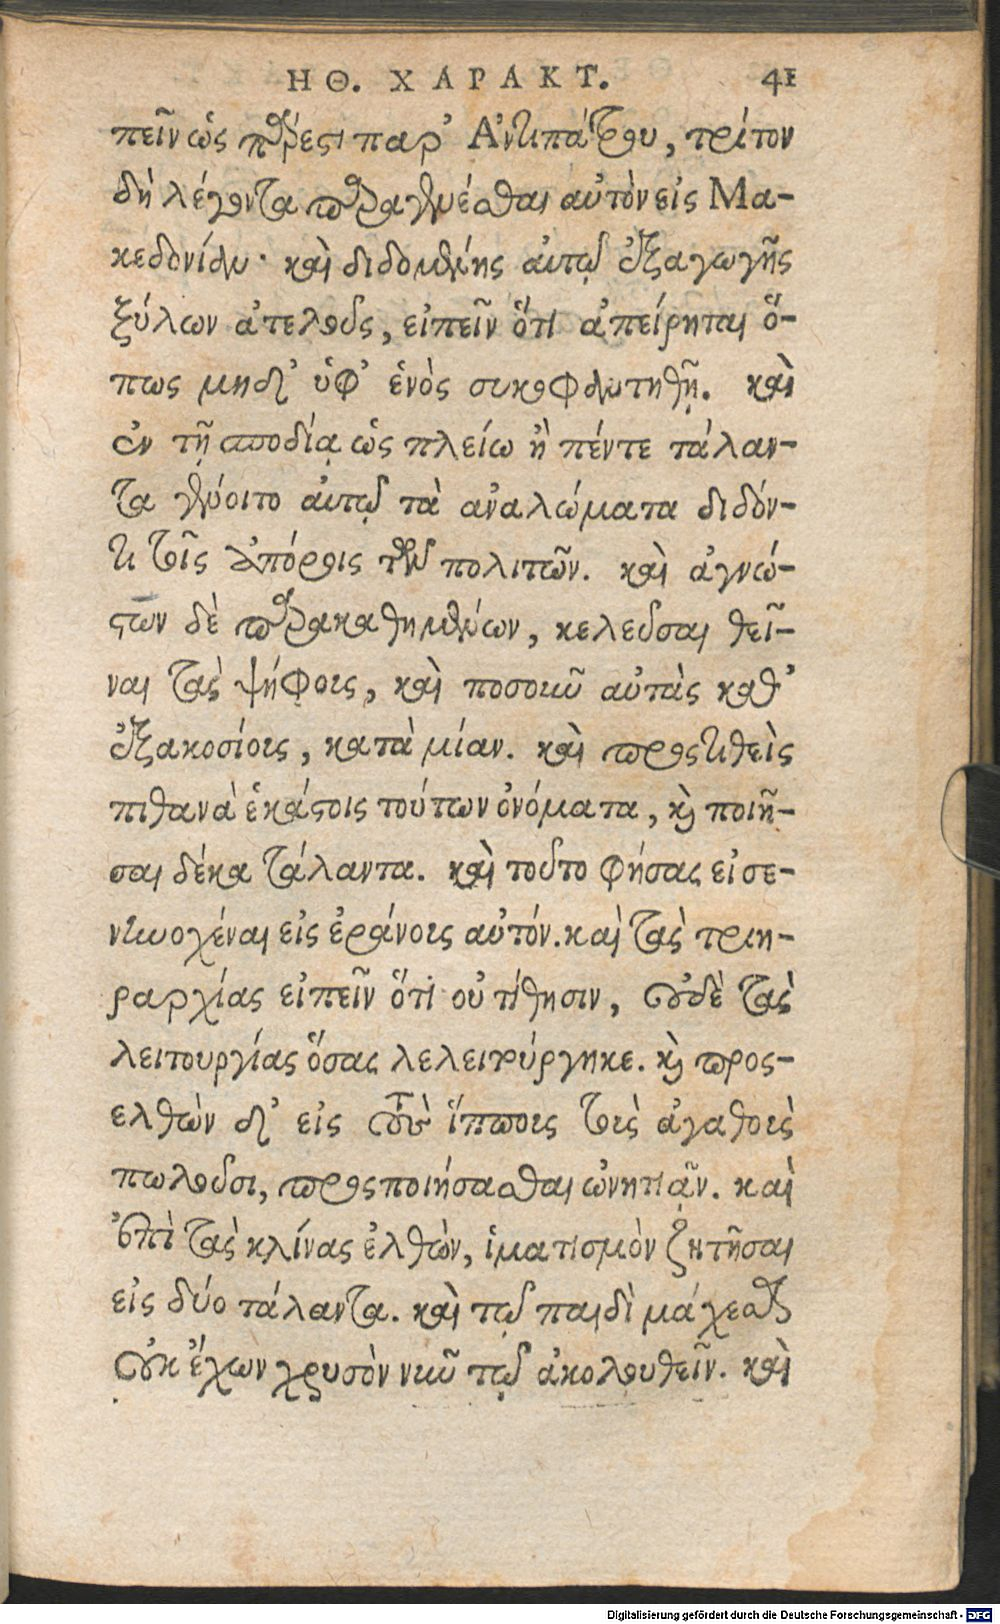 ΗΘ. ΧΑΡΑΚΤ. 41
πεῖν ὡς πάρεστι παρ' Ἀντιπάτρου, τρίτον
δὴ λέγοντα παραγενέσθαι αὐτὸν εἰς Μα-
κεδονίαν· καὶ διδομένης αὐτῷ ἐξαγωγῆς
ξύλων ἀτελοῦς, εἰπεῖν ὅτι ἀπείρηται ὅ-
πως μηδ' ὑφ' ἑνὸς συκοφαντηθῇ. καὶ
ἐν τῇ σποδίᾳ ὡς πλείω ἢ πέντε τάλαν-
τα γένοιτο αὐτῷ τὰ ἀναλώματα διδόν-
τι τοῖς ἀπόροις τῶν πολιτῶν. καὶ ἀγνώ-
στων δὲ παρακαθημένων, κελεῦσαι θεῖ-
ναι τὰς ψήφους, καὶ ποσοῦν αὐτὰς καθ'
ἑξακοσίους, κατὰ μίαν. καὶ προςτιθεὶς
πιθανὰ ἑκάστοις τούτων ὀνόματα, καὶ ποιῆ-
σαι δέκα τάλαντα. καὶ τοῦτο φήσας εἰσε-
νηνοχέναι εἰς ἐράνους αὐτόν. καὶ τὰς τριη-
ραρχίας εἰπεῖν ὅτι οὐ τίθησιν, οὐδὲ τὰς
λειτουργίας ὅσας λελειτούργηκε. καὶ προς-
ελθὼν δ' εἰς τοὺς ἵππους τοὺς ἀγαθοὺς
πωλοῦσι, προςποιήσασθαι ὠνητιᾷν. καὶ
ἐπὶ τὰς κλίνας ἐλθὼν, ἱματισμὸν ζητῆσαι
εἰς δύο τάλαντα. καὶ τῷ παιδὶ μάχεσθαι
οὐκ ἔχων χρυσὸν νῦν τῷ ἀκολουθεῖν. καὶ
Digitalisierung gefördert durch die Deutsche Forschungsgemeinschaft - DFG